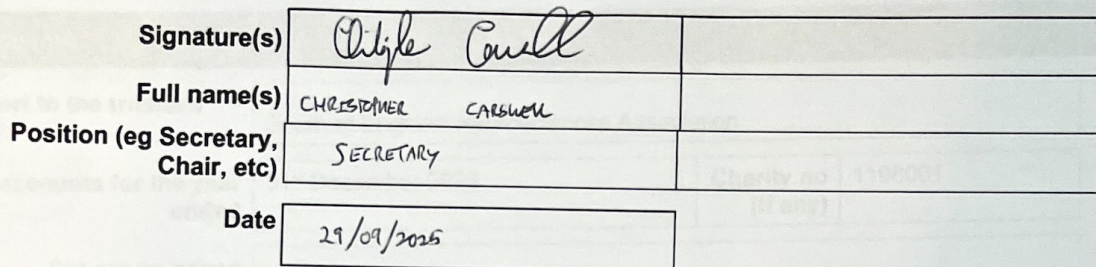 Signature(s)
Full name(s) CHRISTOPHER CARSWELL
Position (eg Secretary, Chair, etc) SECRETARY
Date 29/09/2025
Charity no 1108001
(if any)